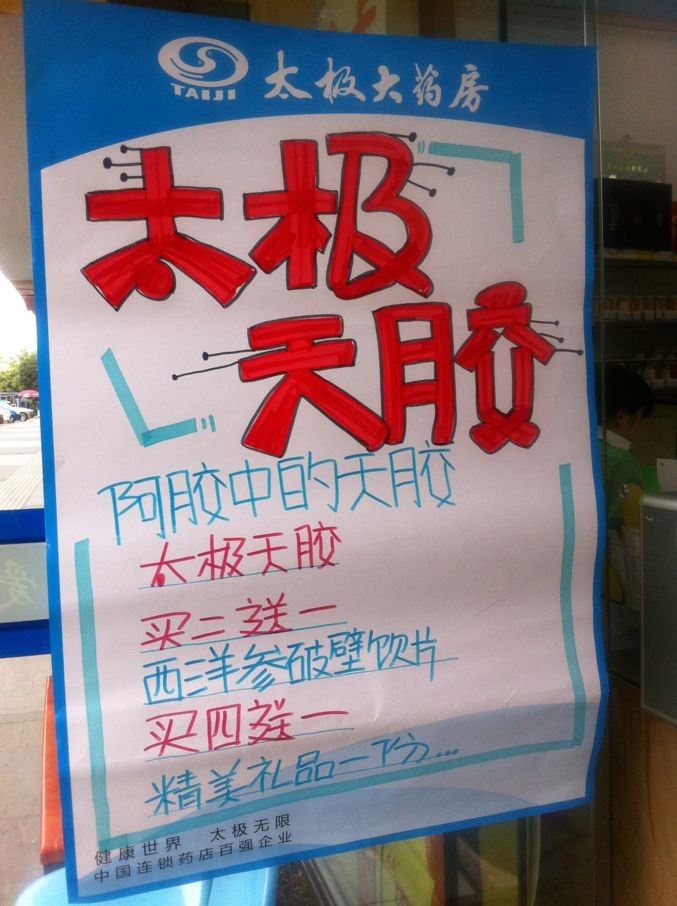 TAIJI 太极大药房
太极
天胶
阿胶中的天胶
太极天胶
买二送一
西洋参破壁饮片
买四送一
精美礼品一份...
健康世界 太极无限
中国连锁药店百强企业
爱